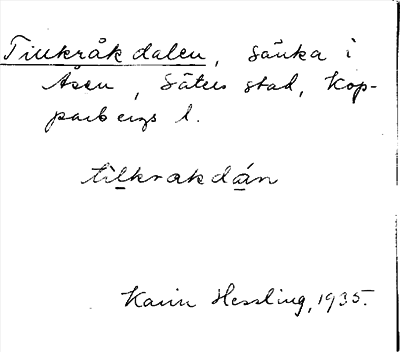 Tillkråkdalen, sänka i
Åsen, Säters stad, Kop-
parbergs l.
tilkrakdán
Karin Hessling, 1935.